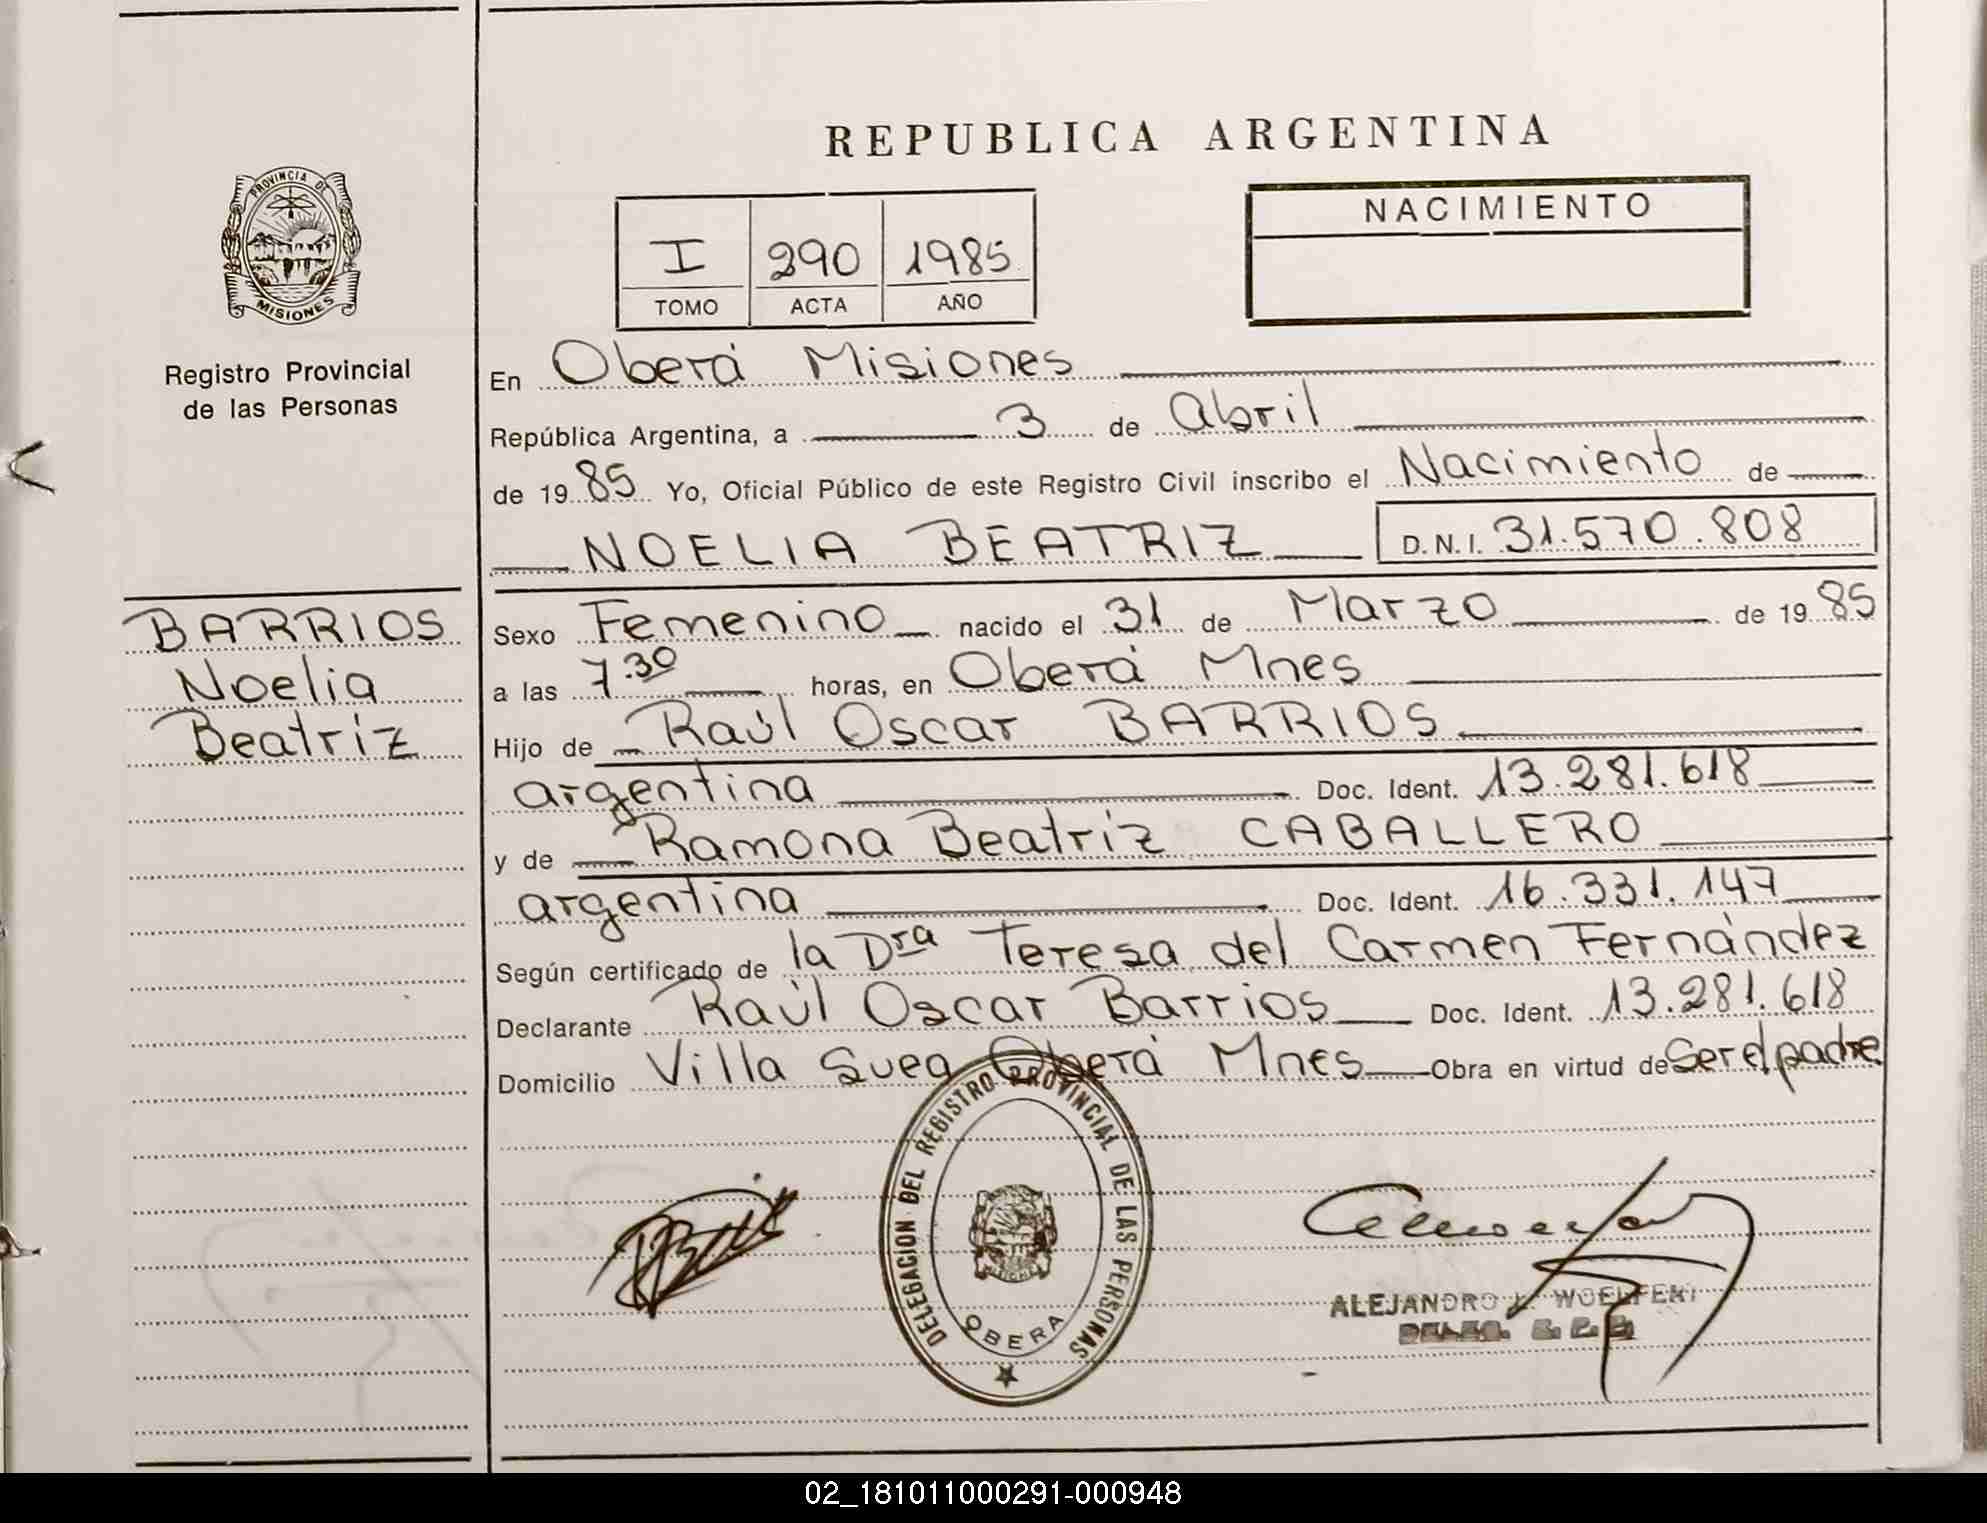 REPUBLICA ARGENTINA
PROVINCIA DE
MISIONES
Registro Provincial
de las Personas
I 290 1985
TOMO ACTA AÑO
NACIMIENTO
En Oberá Misiones
República Argentina, a 3 de Abril
de 1985 Yo, Oficial Público de este Registro Civil inscribo el Nacimiento de
NOELIA BEATRIZ D.N.I. 31.570.808
BARRIOS
Noelia
Beatriz
Sexo Femenino nacido el 31 de Marzo de 1985
a las 7.30 horas, en Oberá Mnes
Hijo de Raúl Oscar BARRIOS
argentina Doc. Ident. 13.281.618
y de Ramona Beatriz CABALLERO
argentina Doc. Ident. 16.331.147
Según certificado de la Dra Teresa del Carmen Fernández
Declarante Raúl Oscar Barrios Doc. Ident. 13.281.618
Domicilio Villa Suea Oberá Mnes Obra en virtud de Ser el padre
DELEGACION DEL REGISTRO PROVINCIAL DE LAS PERSONAS
OBERA
ALEJANDRO
02_181011000291-000948